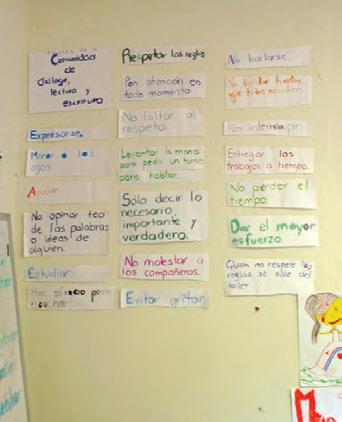 Comunidad
de
diálogo,
lectura y
escritura
Expresarse.
Mirar a los
ojos
Ayudar
No opinar feo
de las palabras
o ideas de
alguien.
Estudiar
Haz silencio para
escuchar
Respetar las reglas
Pon atención en
todo momento.
No faltar al
respeto.
Levantar la mano
para pedir un turno
para hablar.
Sólo decir lo
necesario,
importante y
verdadero.
No molestar a
los compañeros.
Evitar gritar.
No burlarse.
No
que
No interrumpir
Entregar los
trabajos a tiempo.
No perder el
tiempo
Dar el mayor
esfuerzo.
Quien no respete las
reglas se sale del
taller